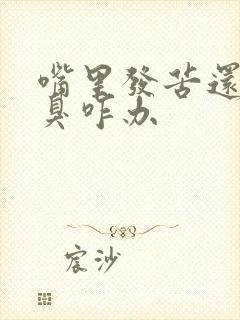 嘴里發苦還
臭咋办
宸沙